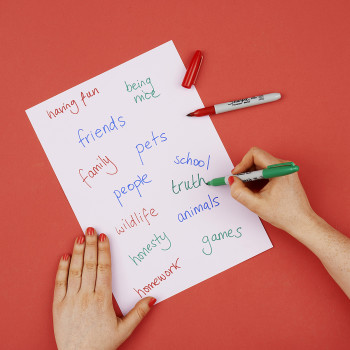 having fun
being
nice
friends
pets
family
school
people
truth
animals
wildlife
honesty
games
homework